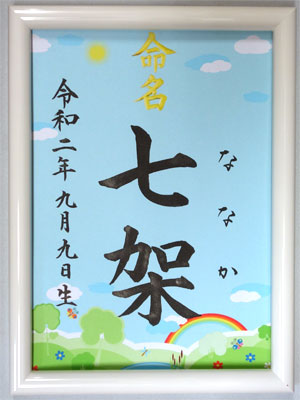 命名
ななか
七架
令和二年九月九日生